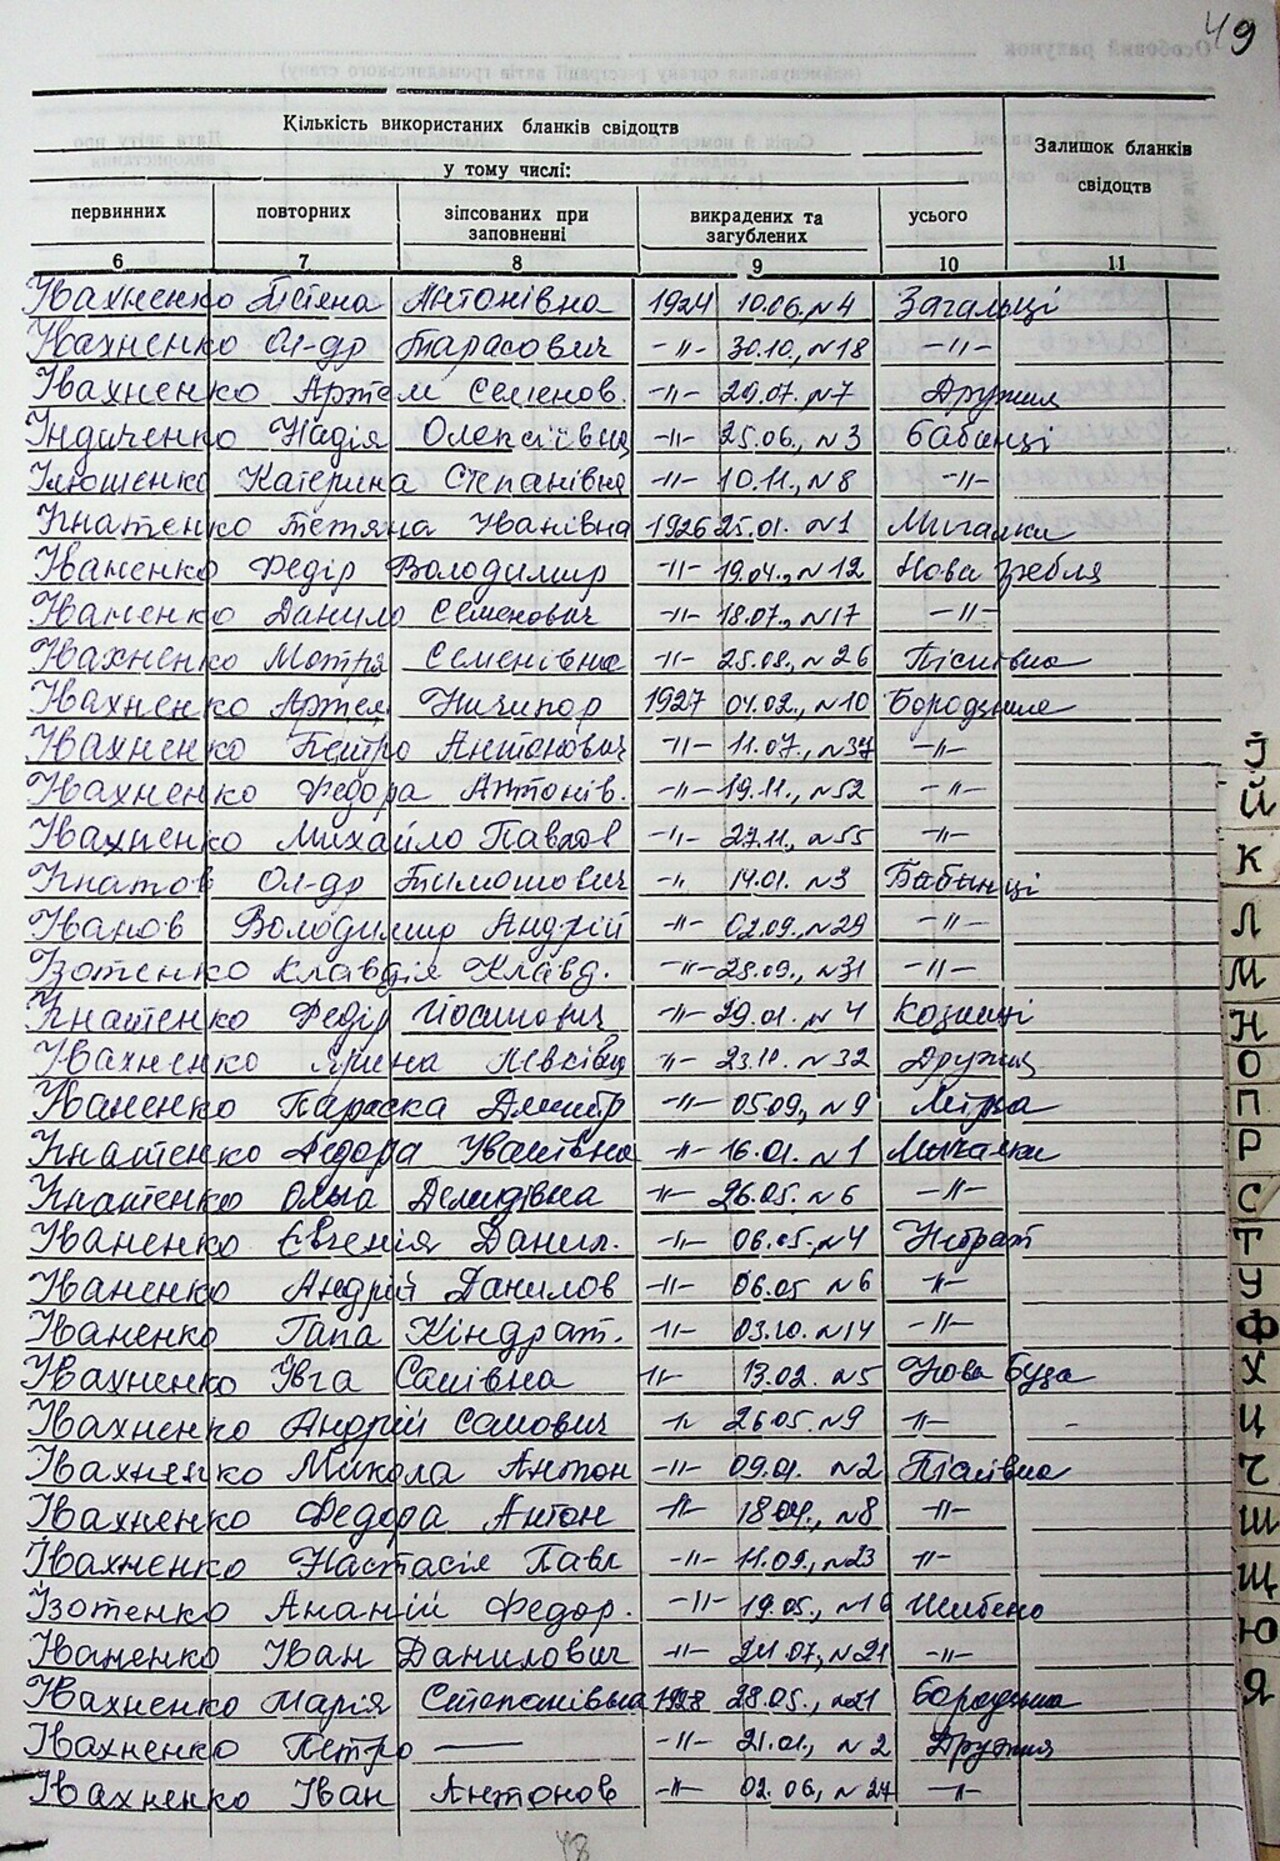 49
Кількість використаних бланків свідоцтв
Залишок бланків свідоцтв
у тому числі:
первинних повторних зіпсованих при заповненні викрадених та загублених усього
6 7 8 9 10 11
Івахненко Тетяна Антонівна 1924 10.06., N4 Загальці
Івахненко Ол-др Тарасович -"- 30.10., N18 -"-
Івахненко Артем Семенов. -"- 29.07. N7 Дружня
Індиченко Надія Олексіївна -"- 25.06., N3 Бабинці
Ілюшенко Катерина Степанівна -"- 10.11., N8 -"-
Ігнатенко Тетяна Іванівна 1926 25.01. N1 Мигалки
Іваненко Федір Володимир -"- 19.04., N12 Нова Гребля
Іваненко Данило Семенович -"- 18.07., N17 -"-
Івахненко Мотря Семенівна -"- 25.08., N26 Пісківка
Івахненко Артем Ничипор 1927 04.02., N10 Бородянка
Івахненко Петро Антонович -"- 11.07., N37 -"-
Івахненко Федора Антонів. -"- 19.11., N52 -"-
Івахненко Михайло Павлов -"- 27.11., N55 -"-
Ігнатов Ол-др Тимошович -" 14.01. N3 Бабинці
Іванов Володимир Андрій -"- 02.09., N29 -"-
Ізотенко Клавдія Клавд. -"- 28.09., N31 -"-
Ігнатенко Федір Йосипович -"- 29.01., N4 Козинці
Івахненко Ярина Левківна "- 23.10. N32 Дружня
Іваненко Параска Дмитр -"- 05.09., N9
Ігнатенко Федора Іванівна -"- 16.01. N1 Мигалки
Ігнатенко Ольга Демидівна -"- 26.05. N6 -"-
Іваненко Євгенія Данил. -"- 06.05., N4
Іваненко Андрій Данилов -"- 06.05 N6 "-
Іваненко Гапа Кіндрат. -"- 03.10. N14 -"-
Івахненко Івга Савівна "- 13.02. N5 Нова Буда
Івахненко Андрій Савович -" 26.05. N9 -"-
Івахненко Микола Антон -"- 09.01. N2 Пісківка
Івахненко Федора Антон -"- 18.04., N8 -"-
Івахненко Настасія Павл -"- 11.09., N23 -"-
Ізотенко Ананій Федор. -"- 19.05., N16 Шибено
Іваненко Іван Данилович -"- 24.07., N21 -"-
Івахненко Марія Степанівна 1928 28.05., N21 Бородянка
Івахненко Петро — -"- 21.01., N2 Дружня
Івахненко Іван Антонов -"- 02.06., N27 -"-
48
І
Й
К
Л
М
Н
О
П
Р
С
Т
У
Ф
Х
Ц
Ч
Ш
Щ
Ю
Я